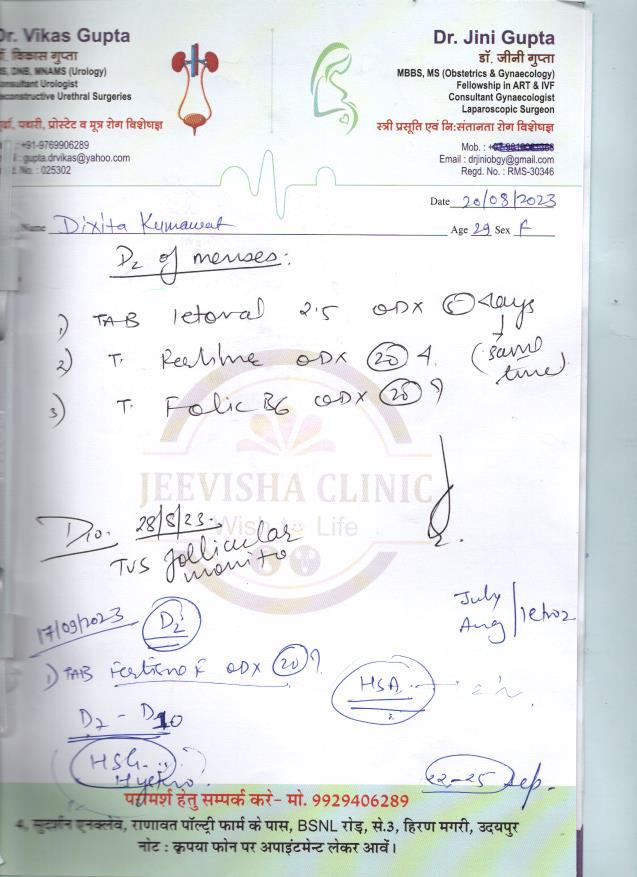 Dr. Vikas Gupta
डॉ. विकास गुप्ता
MS, DNB, MNAMS (Urology)
Consultant Urologist
Reconstructive Urethral Surgeries
पथरी, प्रोस्टेट व मूत्र रोग विशेषज्ञ
+91-9769906289
gupta.drvikas@yahoo.com
No. : 025302
Dr. Jini Gupta
डॉ. जीनी गुप्ता
MBBS, MS (Obstetrics & Gynaecology)
Fellowship in ART & IVF
Consultant Gynaecologist
Laparoscopic Surgeon
स्त्री प्रसूति एवं नि:संतानता रोग विशेषज्ञ
Mob. :
Email : drjiniobgy@gmail.com
Regd. No. : RMS-30346
Date 20/08/2023
Name Dixita Kumawat Age 29 Sex F
D2 of menses:
1) TAB letoval 2.5 OD X 5 days
2) T. OD X 20 (same time)
3) T. Folic B6 OD X 20
JEEVISHA CLINIC
Wish to Life
D10. 28/8/23.
TVS follicular
monito
17/09/2023 D2
July
Aug
1) TAB OD X 20
HSA
D7 - D10
HSG
22-25 Sep.
परामर्श हेतु सम्पर्क करे- मो. 9929406289
4, सुदर्शन एनक्लेव, राणावत पॉल्ट्री फार्म के पास, BSNL रोड़, से.3, हिरण मगरी, उदयपुर
नोट : कृपया फोन पर अपाइंटमेन्ट लेकर आवें।